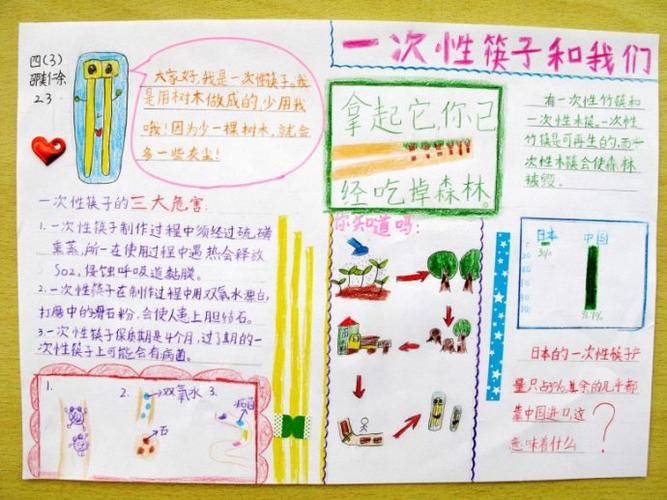 四(3)
23
大家好,我是一次性筷子。我
是用树木做成的,少用我
哦!因为少一棵树木,就会
多一些灰尘!
一次性筷子和我们
拿起它,你已
经吃掉森林。
有一次性竹筷和
一次性木筷。一次性
竹筷是可再生的,而一
次性木筷会使森林
被毁。
一次性筷子的三大危害:
1.一次性筷子制作过程中须经过硫磺
熏蒸,所一在使用过程中遇热会释放
SO2,侵蚀呼吸道黏膜。
2.一次性筷子在制作过程中用双氧水漂白,
打磨中的滑石粉,会使人患上胆结石。
3.一次性筷子保质期是4个月,过了期的一
次性筷子上可能会有病菌。
1.
2.
双氧水
石
3.
病菌
你知道吗:
日本
中国
日本的一次性筷子产
量只占3%,其余的几乎都
靠中国进口,这
意味着什么
?